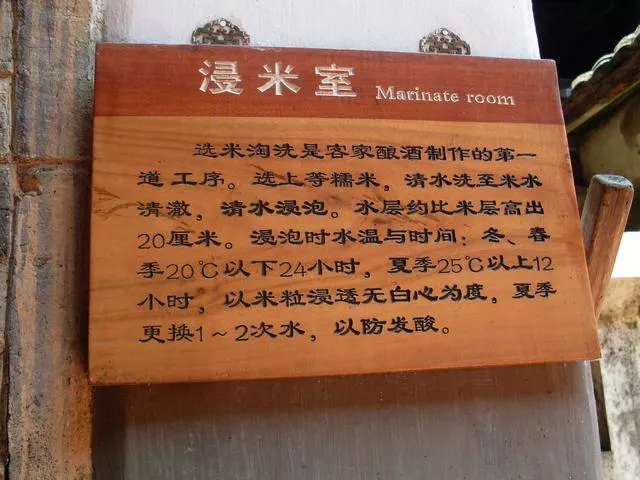 浸米室 Marinate room
选米淘洗是客家酿酒制作的第一
道工序。选上等糯米，清水洗至米水
清澈，清水浸泡。水层约比米层高出
20厘米。浸泡时水温与时间：冬、春
季20℃以下24小时，夏季25℃以上12
小时，以米粒浸透无白心为度，夏季
更换1～2次水，以防发酸。